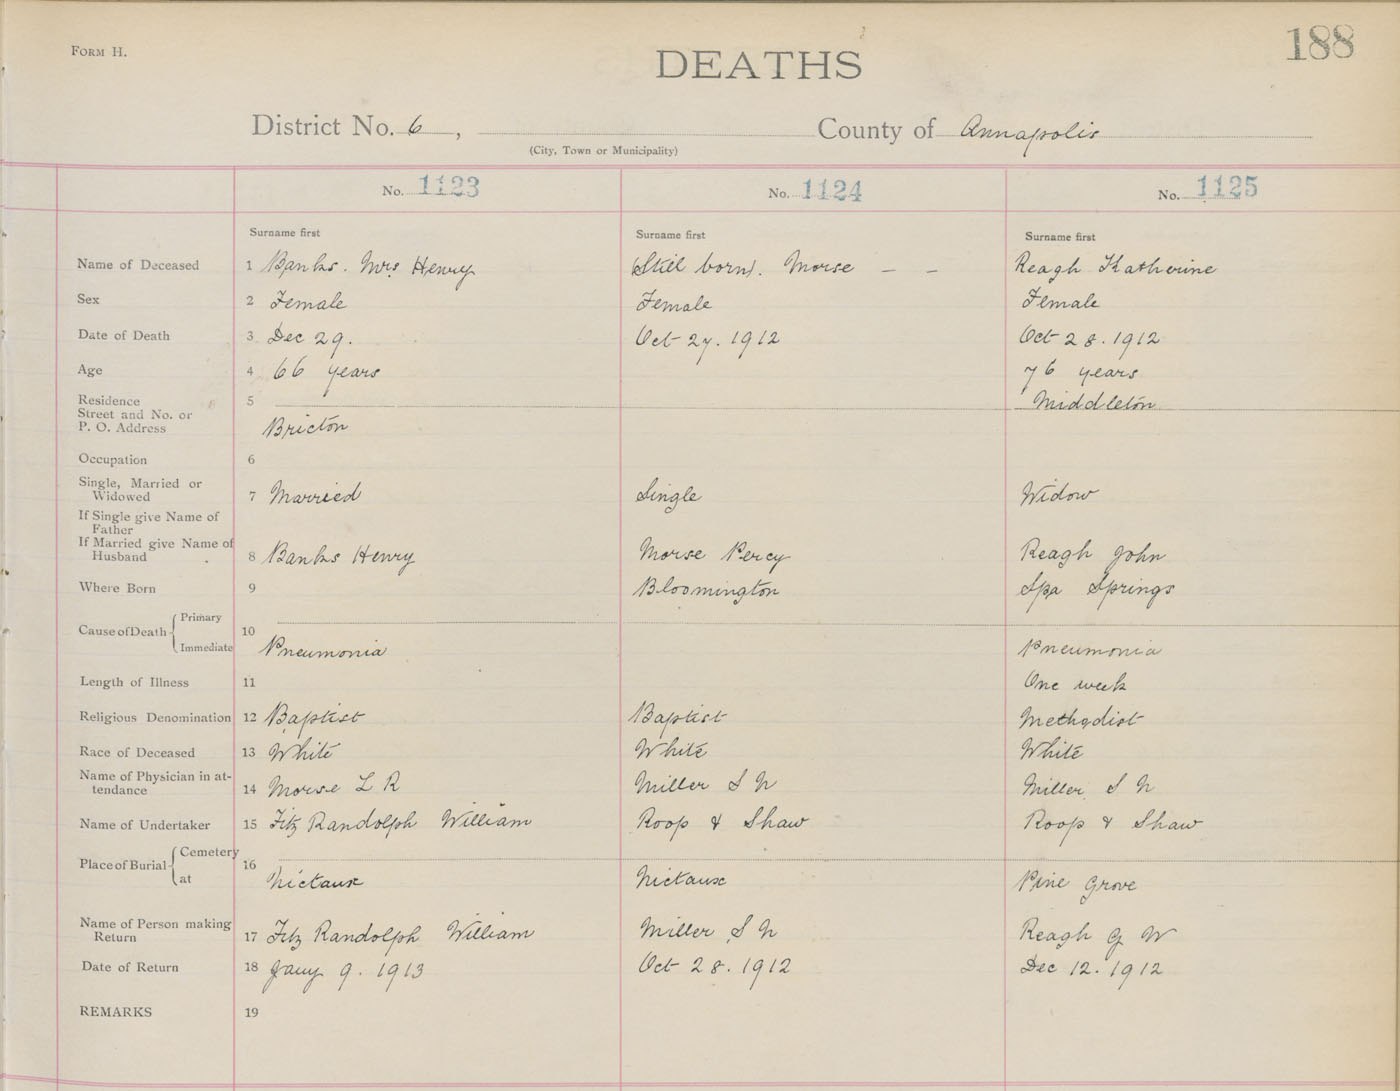 FORM H.
DEATHS
188
District No. 6, County of Annapolis
(City, Town or Municipality)
No. 1123 No. 1124 No. 1125
Surname first Surname first Surname first
Name of Deceased 1 Banks. Mrs Henry (Still born). Morse — — Reagh Katherine
Sex 2 Female Female Female
Date of Death 3 Dec 29. Oct 27. 1912 Oct 28. 1912
Age 4 66 years 76 years
Residence 5 Middleton
Street and No. or
P. O. Address Bricton
Occupation 6
Single, Married or
Widowed 7 Married Single Widow
If Single give Name of
Father
If Married give Name of
Husband 8 Banks Henry Morse Percy Reagh John
Where Born 9 Bloomington Spa Springs
Cause of Death Primary 10
Immediate Pneumonia Pneumonia
Length of Illness 11 One week
Religious Denomination 12 Baptist Baptist Methodist
Race of Deceased 13 White White White
Name of Physician in at-
tendance 14 Morse L R Miller S N Miller S N
Name of Undertaker 15 Fitz Randolph William Roop & Shaw Roop & Shaw
Place of Burial Cemetery 16
at Nictaux Nictaux Pine Grove
Name of Person making
Return 17 Fitz Randolph William Miller S N Reagh G W
Date of Return 18 Jany 9. 1913 Oct 28. 1912 Dec 12. 1912
REMARKS 19